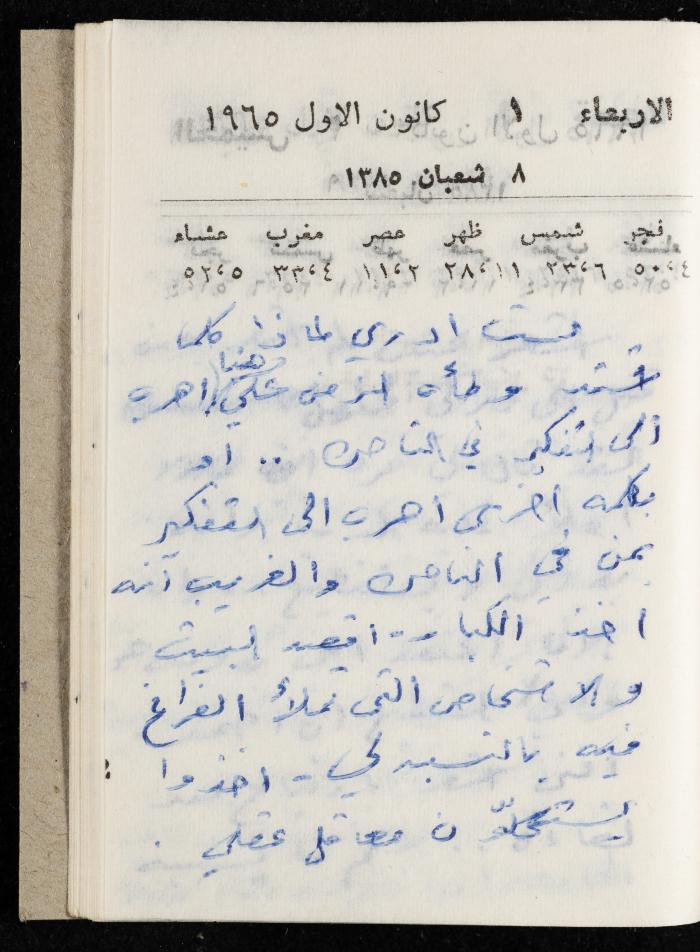 الاربعاء ١ كانون الاول ١٩٦٥
٨ شعبان ١٣٨٥
فجر شمس ظهر عصر مغرب عشاء
٤،٥٠ ٦،٢٣ ١١،٢٨ ٢،١١ ٤،٣٣ ٥،٥٢
لست ادري لماذا كلما
اشتد وطأه الزمن علي هنا اهرب
الى التفكير في الناحيه .. او
بكلمه اخرى اهرب الى التفكير
بمن في الناحيه والغريب انه
اخذ الكيا .. اقصد البيت
والاشخاص التي تملأ الفراغ
فيه بالنسبه لي - اخذوا
يستحلّون معاقل عقلي .